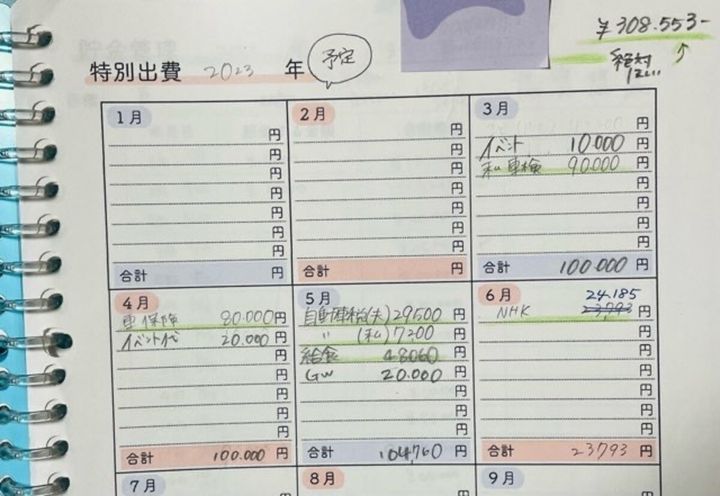 ¥308.553-
絶対
特別出費 2023 年 予定
1月
円
円
円
円
円
円
円
合計 円
2月
円
円
円
円
円
円
円
合計 円
3月
円
イベント 10.000 円
私車検 90.000 円
円
円
円
円
合計 100.000 円
4月
車保険 80.000 円
イベント代 20.000 円
円
円
円
円
円
合計 100.000 円
5月
自動車税(夫) 29500 円
〃 (私) 7200 円
給食 48060 円
GW 20.000 円
円
円
円
合計 104,760 円
6月
24.185
NHK 23,793 円
円
円
円
円
円
円
合計 23793 円
7月
8月
9月